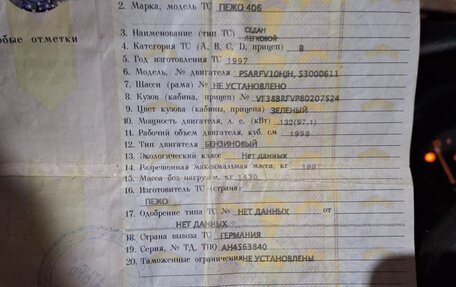 2. Марка, модель ТС ПЕЖО 406
обые отметки
3. Наименование (тип ТС) СЕДАН
ЛЕГКОВОЙ
4. Категория ТС (А, В, С, D, прицеп) B
5. Год изготовления ТС 1997
6. Модель, № двигателя PSARFV10HJH, 53000611
7. Шасси (рама) № НЕ УСТАНОВЛЕНО
8. Кузов (кабина, прицеп) № VF38BRFVP80207524
9. Цвет кузова (кабины, прицепа) ЗЕЛЕНЫЙ
10. Мощность двигателя, л. с. (кВт) 132(97,1)
11. Рабочий объем двигателя, куб. см 1998
12. Тип двигателя БЕНЗИНОВЫЙ
13. Экологический класс Нет данных
14. Разрешенная максимальная масса, кг
15. Масса без нагрузки, кг 1430
16. Изготовитель ТС (страна)
ПЕЖО
17. Одобрение типа ТС № НЕТ ДАННЫХ от
НЕТ ДАННЫХ
18. Страна вывоза ТС ГЕРМАНИЯ
19. Серия, № ТД, ТПО АН4563840
20. Таможенные ограничения НЕ УСТАНОВЛЕНЫ